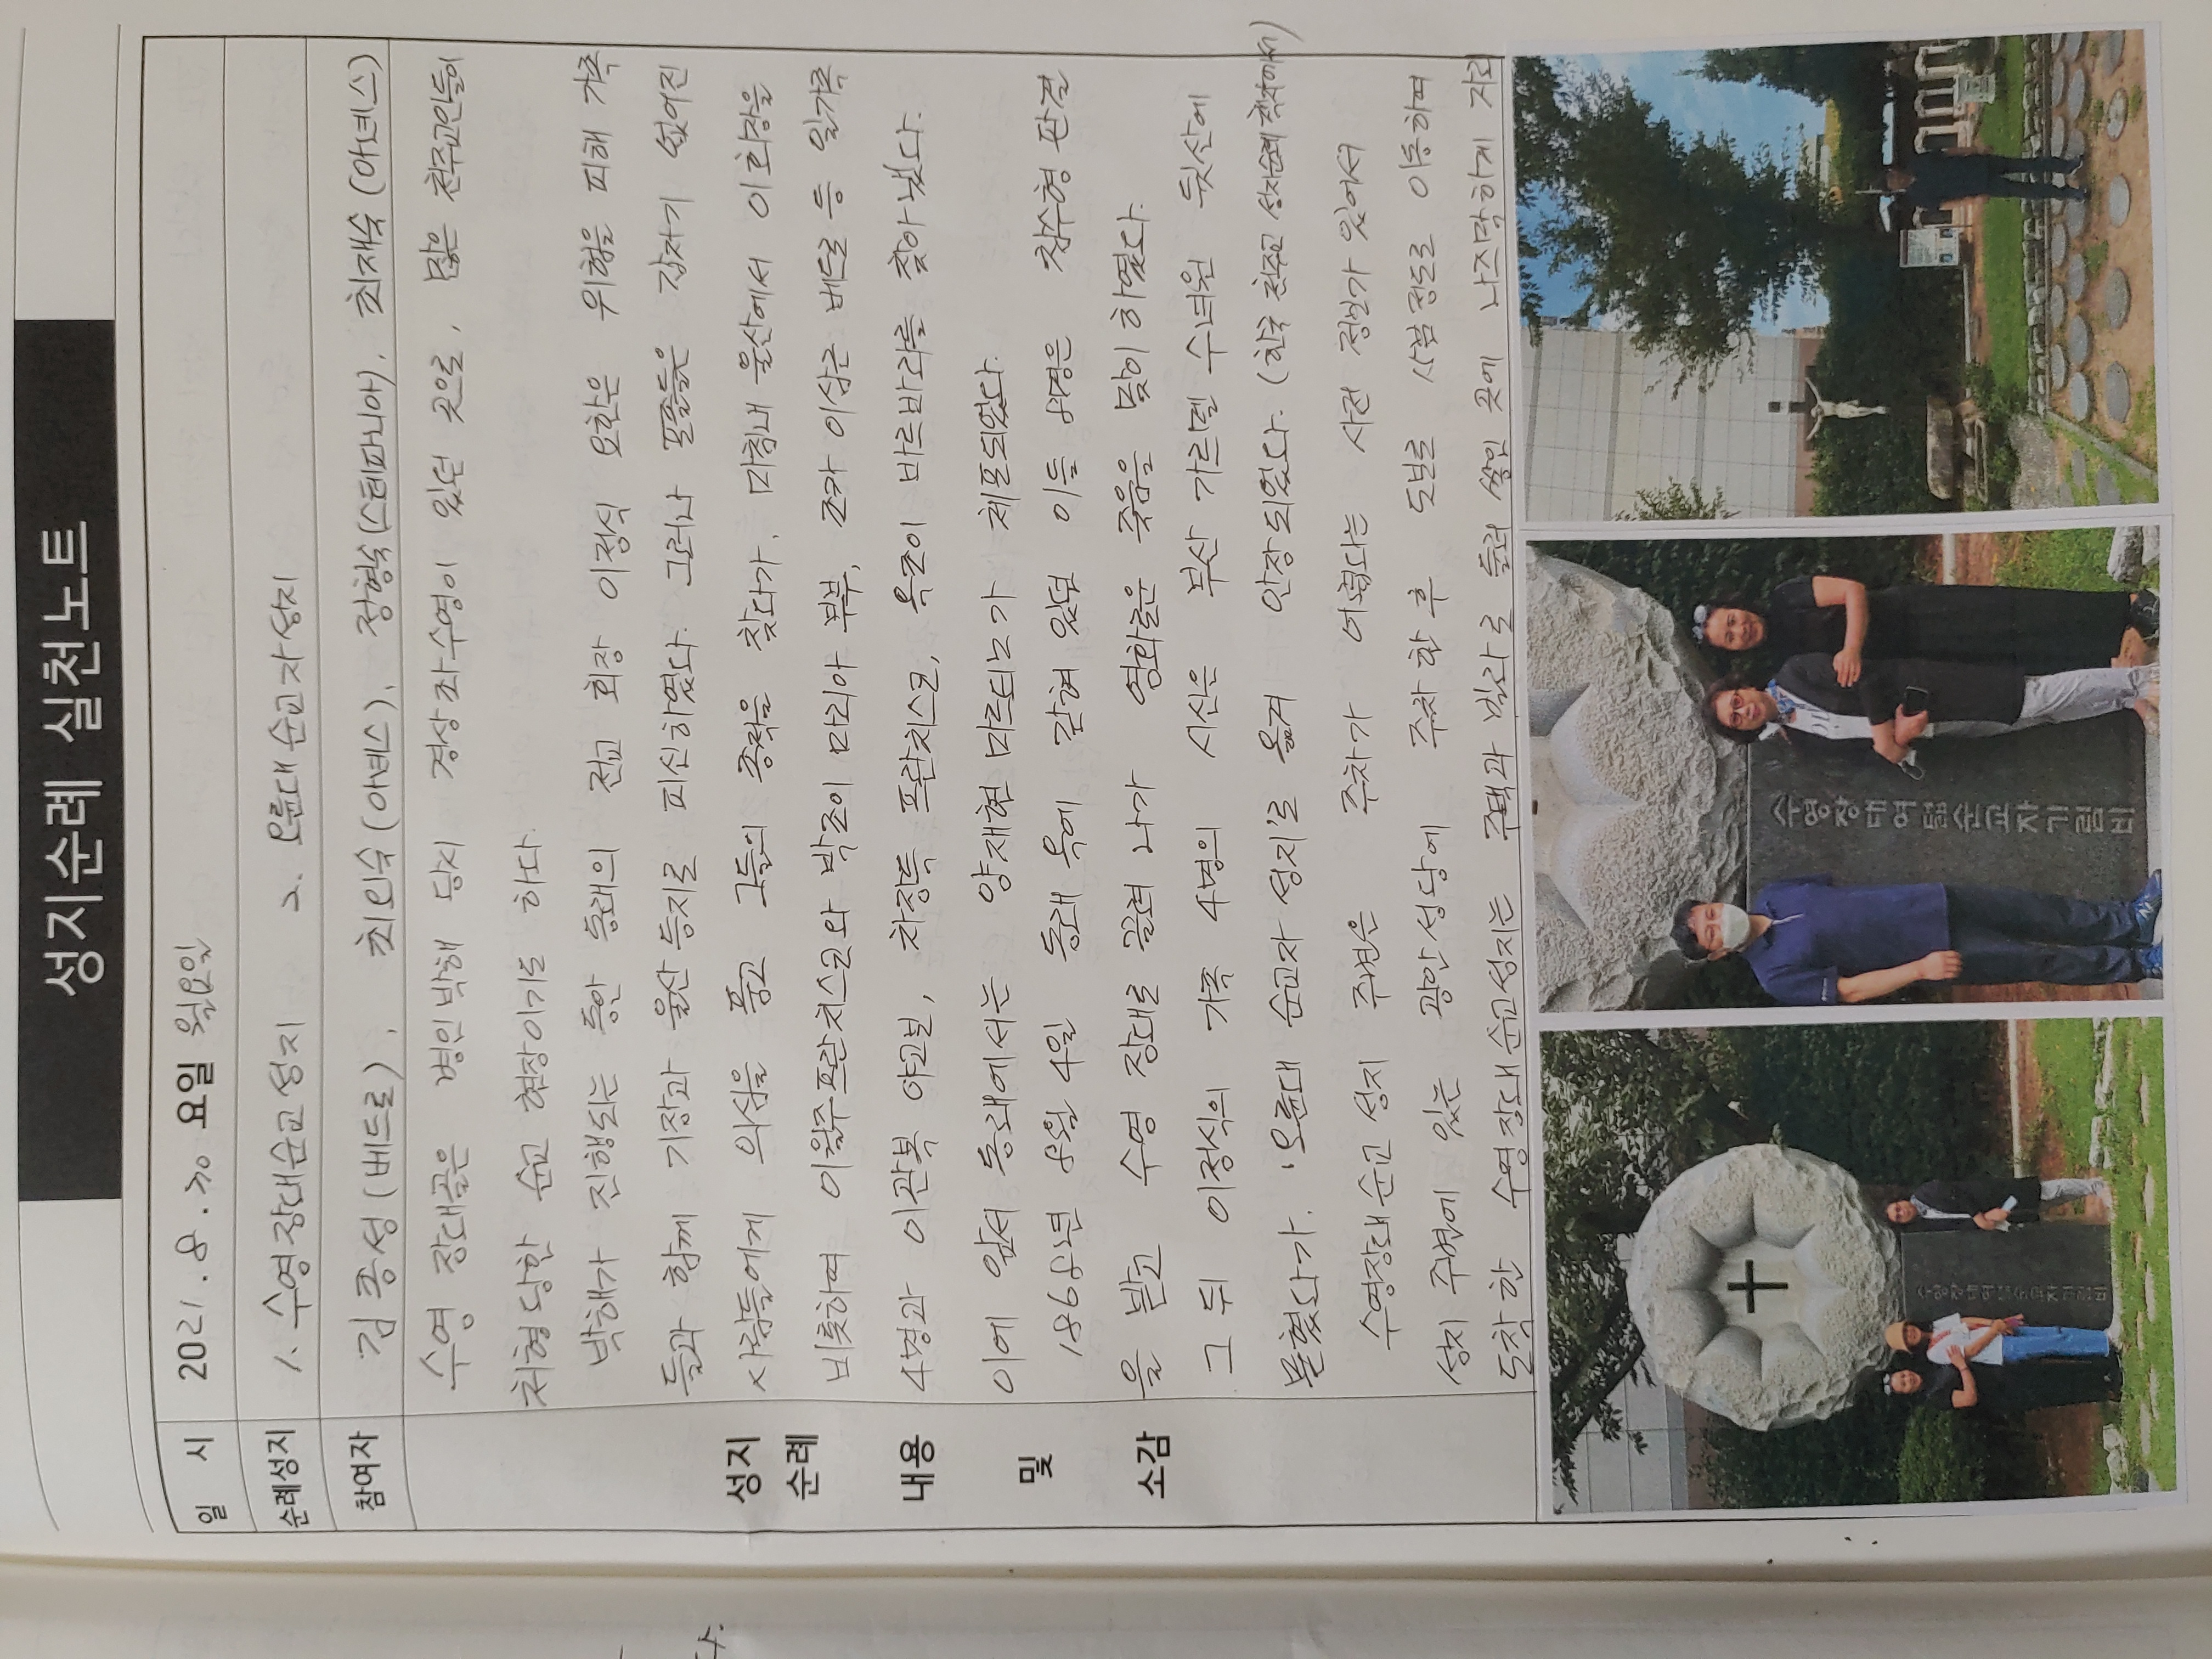 성지순례 실천노트
일 시 2021. 8. 30 요일 월요일
순례성지 1. 수영장대순교성지 2. 오륜대순교자성지
참여자 김종성(베드로), 최외숙(아녜스), 정형숙(스테파니아), 최재숙(아녜스)
성지 순례 내용 및 소감
수영 장대골은 병인박해 당시 경상좌수영이 있던 곳으로, 많은 천주교인들이
처형당한 순교 현장이기도 하다.
박해가 진행되는 동안 동래의 전교 회장 이정식 요한은 위험을 피해 가족
들과 함께 기장과 울산 등지로 피신하였다. 그러나 포졸들은 갑자기 없어진
사람들에게 의심을 품고 그들의 종적을 찾다가, 마침내 울산에서 이회장을
비롯하여 이월주프란치스코와 박조이 마리아 부부, 조카 이삼근 베드로 등 일가족
4명과 이관복 야고보, 차장득 프란치스코, 옥조이 바르바라를 찾아냈다.
이에 앞서 동래에서는 양재현 마르티노가 체포되었다.
1868년 8월 4일 동래 옥에 갇혀 있던 이들 8명은 참수형 판결
을 받고 수영 장대로 끌려 나가 영화로운 죽음을 맞이 하였다.
그 뒤 이정식의 가족 4명의 시신은 부산 가르멜 수녀원 뒷산에
묻혔다가, '오륜대 순교자 성지'로 옮겨 안장되었다. (한국 천주교 성지순례 책자에서)
수영장대순교 성지 주변은 주차가 어렵다는 사전 정보가 있어서
성지 주변에 있는 광안성당에 주차 한 후 도보로 15분 정도로 이동하여
도착한 수영장대순교성지는 주택과 빌라로 둘러 쌓인 곳에 나즈막하게 자리
수영장대여덟순교자기림비
수영장대여덟순교자기림비
다.